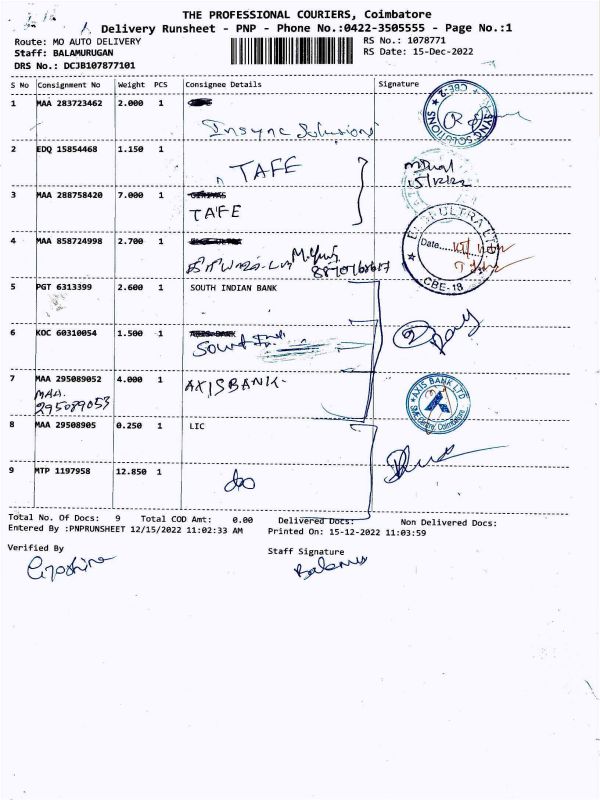 THE PROFESSIONAL COURIERS, Coimbatore
Delivery Runsheet - PNP - Phone No.:0422-3505555 - Page No.:1
Route: MO AUTO DELIVERY
RS No.: 1078771
Staff: BALAMURUGAN
RS Date: 15-Dec-2022
DRS No.: DCJB107877101
S No Consignment No Weight PCS Consignee Details Signature
1 MAA 283723462 2.000 1
Insync Solutions
SYNC SOLUTIONS CBE-2
2 EDQ 15854468 1.150 1
TAFE
15/12/22
3 MAA 288758420 7.000 1
TAFE
ELGI ULTRA LTD
Date
CBE-18
4 MAA 858724998 2.700 1
5 PGT 6313399 2.600 1 SOUTH INDIAN BANK
6 KOC 60310054 1.500 1 AXIS BANK
South Ind
7 MAA 295089052 4.000 1 AXIS BANK-
MAA.
295089053
AXIS BANK LTD
Coimbatore
8 MAA 29508905 0.250 1 LIC
9 MTP 1197958 12.850 1
do
Total No. Of Docs: 9 Total COD Amt: 0.00 Delivered Docs: Non Delivered Docs:
Entered By :PNPRUNSHEET 12/15/2022 11:02:33 AM Printed On: 15-12-2022 11:03:59
Verified By
Staff Signature